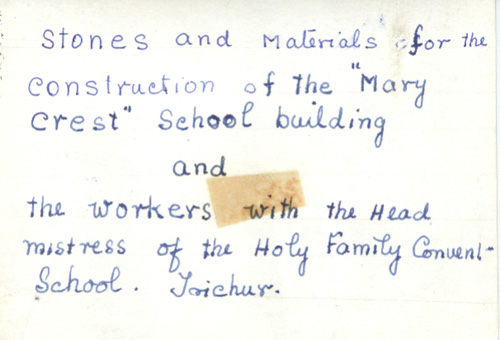 Stones and Materials for the
Construction of the "Mary
Crest" School building
and
the workers with the Head
mistress of the Holy Family Convent
School. Trichur.